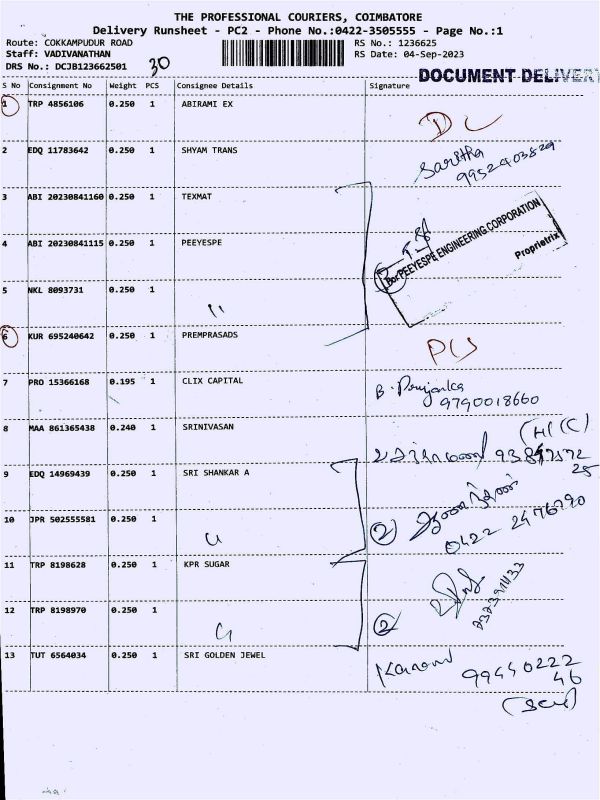 THE PROFESSIONAL COURIERS, COIMBATORE
Delivery Runsheet - PC2 - Phone No.:0422-3505555 - Page No.:1
Route: COKKAMPUDUR ROAD RS No.: 1236625
Staff: VADIVANATHAN RS Date: 04-Sep-2023
DRS No.: DCJB123662501 30
DOCUMENT DELIVERY
S No Consignment No Weight PCS Consignee Details Signature
1 TRP 4856106 0.250 1 ABIRAMI EX
D L
2 EDQ 11783642 0.250 1 SHYAM TRANS
Saritha
9952403829
3 ABI 20230841160 0.250 1 TEXMAT
For PEEYESPE ENGINEERING CORPORATION
Proprietrix
4 ABI 20230841115 0.250 1 PEEYESPE
5 NKL 8093731 0.250 1 "
6 KUR 695240642 0.250 1 PREMPRASADS
7 PRO 15366168 0.195 1 CLIX CAPITAL
B. Priyanka
9790018660
8 MAA 861365438 0.240 1 SRINIVASAN
9 EDQ 14969439 0.250 1 SRI SHANKAR A
10 JPR 502555581 0.250 1
2
0422 2476790
11 TRP 8198628 0.250 1 KPR SUGAR
12 TRP 8198970 0.250 1
2
13 TUT 6564034 0.250 1 SRI GOLDEN JEWEL
99440222
46